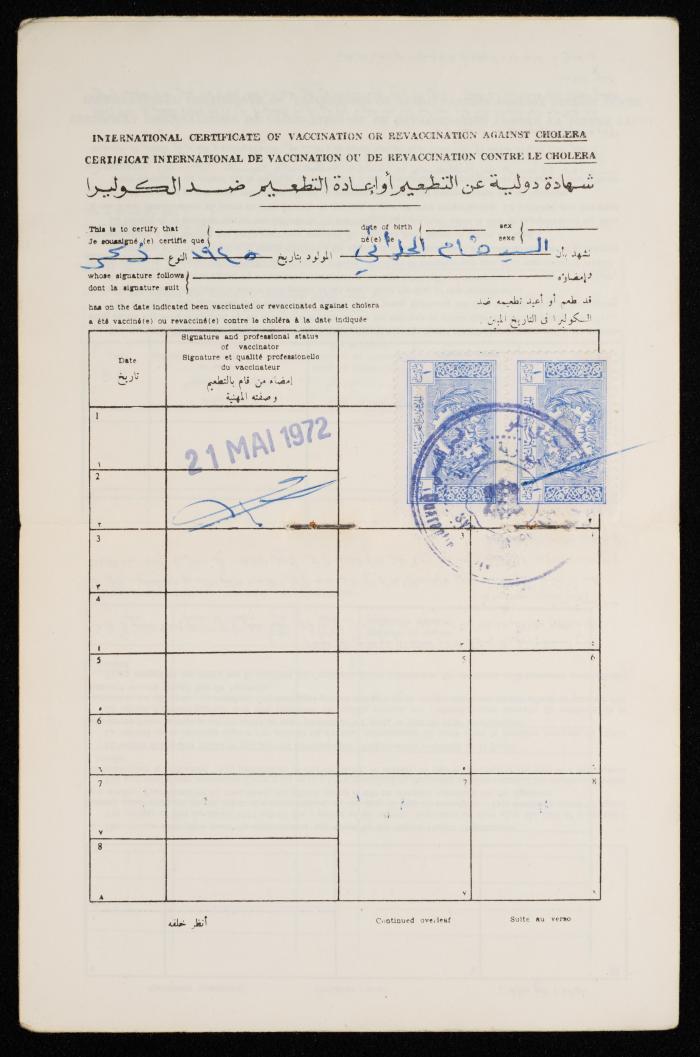 INTERNATIONAL CERTIFICATE OF VACCINATION OR REVACCINATION AGAINST CHOLERA
CERTIFICAT INTERNATIONAL DE VACCINATION OU DE REVACCINATION CONTRE LE CHOLERA
شهادة دولية عن التطعيم أو إعادة التطعيم ضد الكوليرا
This is to certify that date of birth sex
Je soussigné (e) certifie que né(e) le sexe
نشهد بأن السيد هشام الحلواني المولود بتاريخ ١٩٤٥ النوع ذكر
whose signature follows وإمضاؤه
dont la signature suit
has on the date indicated been vaccinated or revaccinated against cholera قد طعم أو أعيد تطعيمه ضد
a été vacciné(e) ou revacciné(e) contre le choléra à la date indiquée السكوليرا فى التاريخ المبين
Date
تاريخ
Signature and professional status
of vaccinator
Signature et qualité professionelle
du vaccinateur
إمضاء من قام بالتطعيم
وصفته المهنية
1
١
21 MAI 1972
2
٢
3
٣
4
٤
5 5 6
٥
6
٦
7 7 8
٧
8
٨ ٧ ٨
أنظر خلفه Continued overleaf Suite au verso